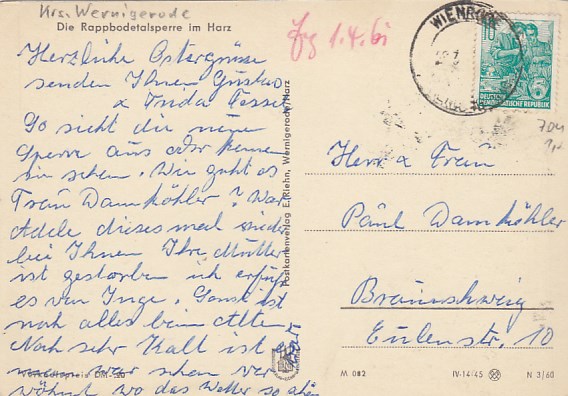 Krs. Wernigerode
Die Rappbodetalsperre im Harz
Herzliche Ostergrüsse
senden Ihnen Gustav
& Frida Tessel
So sieht die neue
Sperre aus oder kennen
sie schon. Wie geht es
Frau Damköhler? War
Adele dieses mal wieder
bei Ihnen Ihre Mutter
ist gestorben ich erfuhr
es von Inge. Sonst ist
noch alles beim Alten
Noch sehr Kalt ist
war schon ver
wöhnt wo das Wetter so
Postkartenverlag E. Riehn, Wernigerode/Harz
1.4.61
WIENRODE
10
DEUTSCHE
DEMOKRATISCHE REPUBLIK
Herr & Frau
Paul Damköhler
Braunschweig
Eulenstr. 10
M 082
IV-14/45
N 3/60